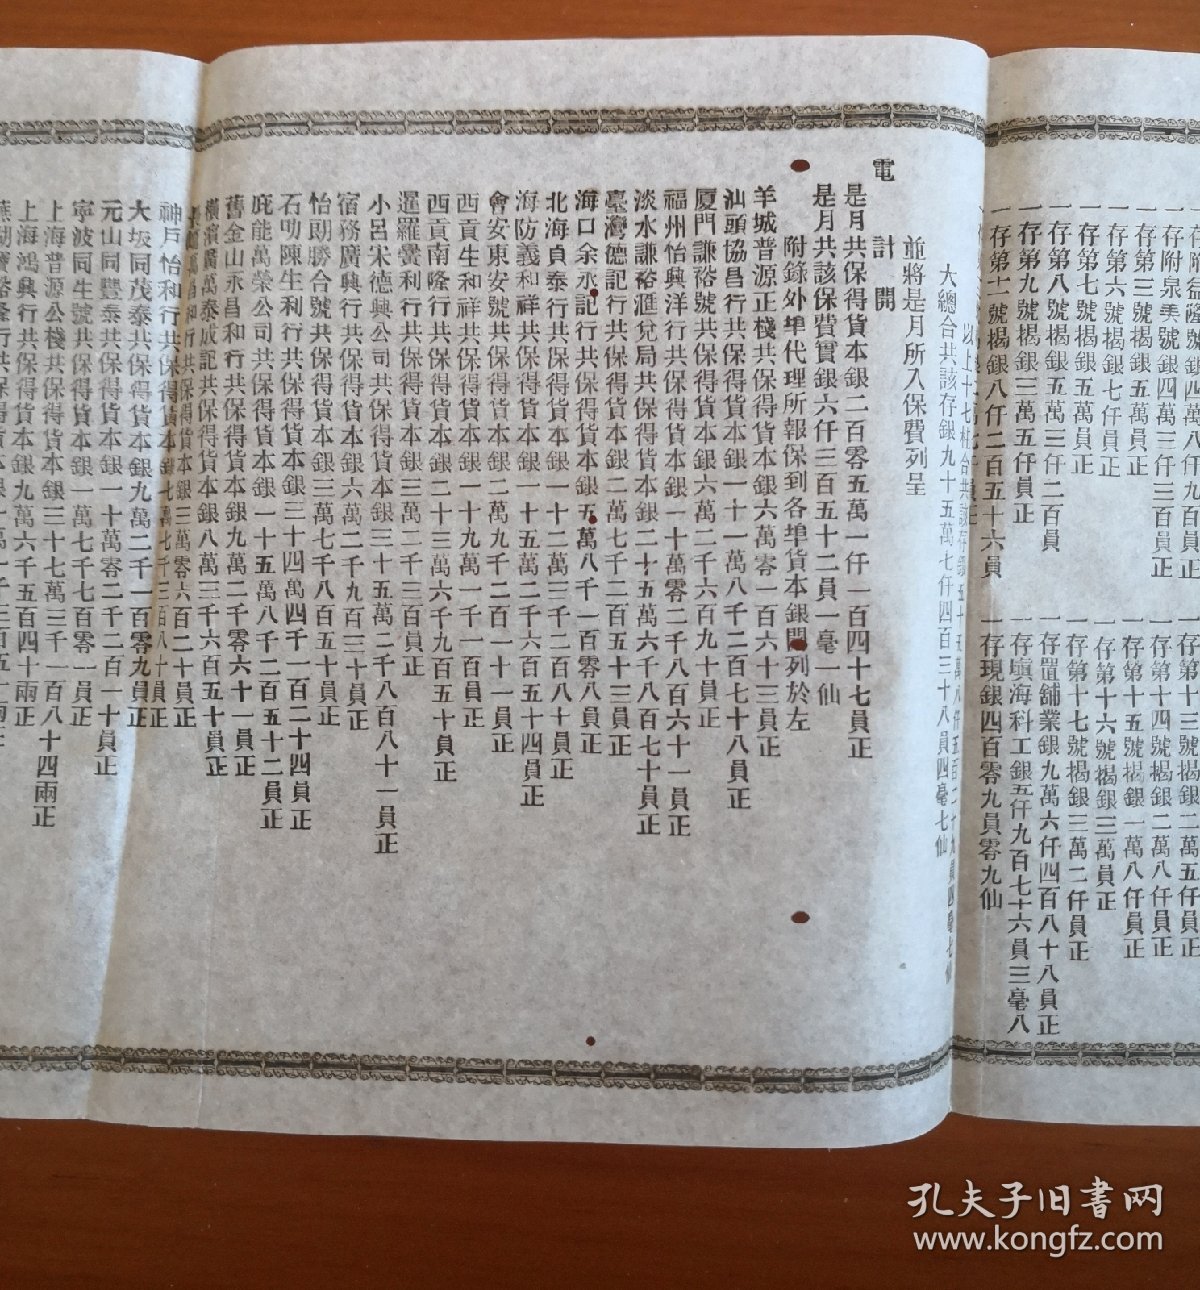 一存第十三號揭銀二萬五仟員正
一存附泉美號銀四萬三仟三百員正
一存第十四號揭銀二萬八仟員正
一存第三號揭銀五萬員正
一存第十五號揭銀一萬八仟員正
一存第六號揭銀七仟員正
一存第十六號揭銀三萬員正
一存第七號揭銀五萬員正
一存第十七號揭銀三萬二仟員正
一存第八號揭銀五萬三仟二百員
一存置舖業銀九萬六仟四百八十八員正
一存第九號揭銀三萬五仟員正
一存填海科工銀五仟九百七十六員三毫八
一存第十一號揭銀八仟二百五十六員
一存現銀四百零九員零九仙
大總合共該存銀九十五萬七仟四百三十八員四毫七仙
並將是月所入保費列呈
電
計開
是月共保得貨本銀二百零五萬一仟一百四十七員正
是月共該保費實銀六仟三百五十二員一毫一仙
附錄外埠代理所報保到各埠貨本銀開列於左
羊城普源正棧共保得貨本銀六萬零一百六十三員正
汕頭協昌行共保得貨本銀一十一萬八千二百七十八員正
厦門謙裕號共保得貨本銀一十六萬二千六百九十員正
福州怡興洋行共保得貨本銀一十萬零二千八百六十一員正
淡水謙裕滙兌局共保得貨本銀二十五萬六千八百七十員正
臺灣德記行共保得貨本銀二萬七千二百五十三員正
海口余永記行共保得貨本銀五萬八千一百零八員正
北海貞泰行共保得貨本銀一十二萬三千二百八十員正
海防義和祥共保得貨本銀一十五萬二千六百五十四員正
會安東安號共保得貨本銀二萬九千二百一十一員正
西貢生和祥共保得貨本銀一十九萬一千一百員正
西貢南隆行共保得貨本銀二十三萬六千九百五十員正
暹羅黌利行共保得貨本銀三萬二千三百員正
小呂宋德興公司共保得貨本銀三十五萬二千八百八十一員正
宿務廣興行共保得貨本銀六萬二千九百三十員正
怡朗勝合號共保得貨本銀三萬七千八百五十員正
石叻陳生利行共保得貨本銀三十四萬四千一百二十四員正
庇能萬榮公司共保得貨本銀一十五萬八千二百五十二員正
舊金山永昌和行共保得貨本銀九萬二千零六十一員正
橫濱廣萬泰成記共保得貨本銀八萬三千六百五十員正
共保得貨本銀三萬零六百二十員正
神戶怡和行共保得貨本銀七萬七千三百八十員正
大坂同茂泰共保得貨本銀九萬二千一百零九員正
元山同豐泰共保得貨本銀一十萬零二千二百一十員正
寧波同生號共保得貨本銀一萬七千七百零一員正
上海普源公棧共保得貨本銀三十七萬三千一百八十四兩正
上海鴻興行共保得貨本銀九萬六千五百四十兩正
孔夫子旧書网
www.kongfz.com